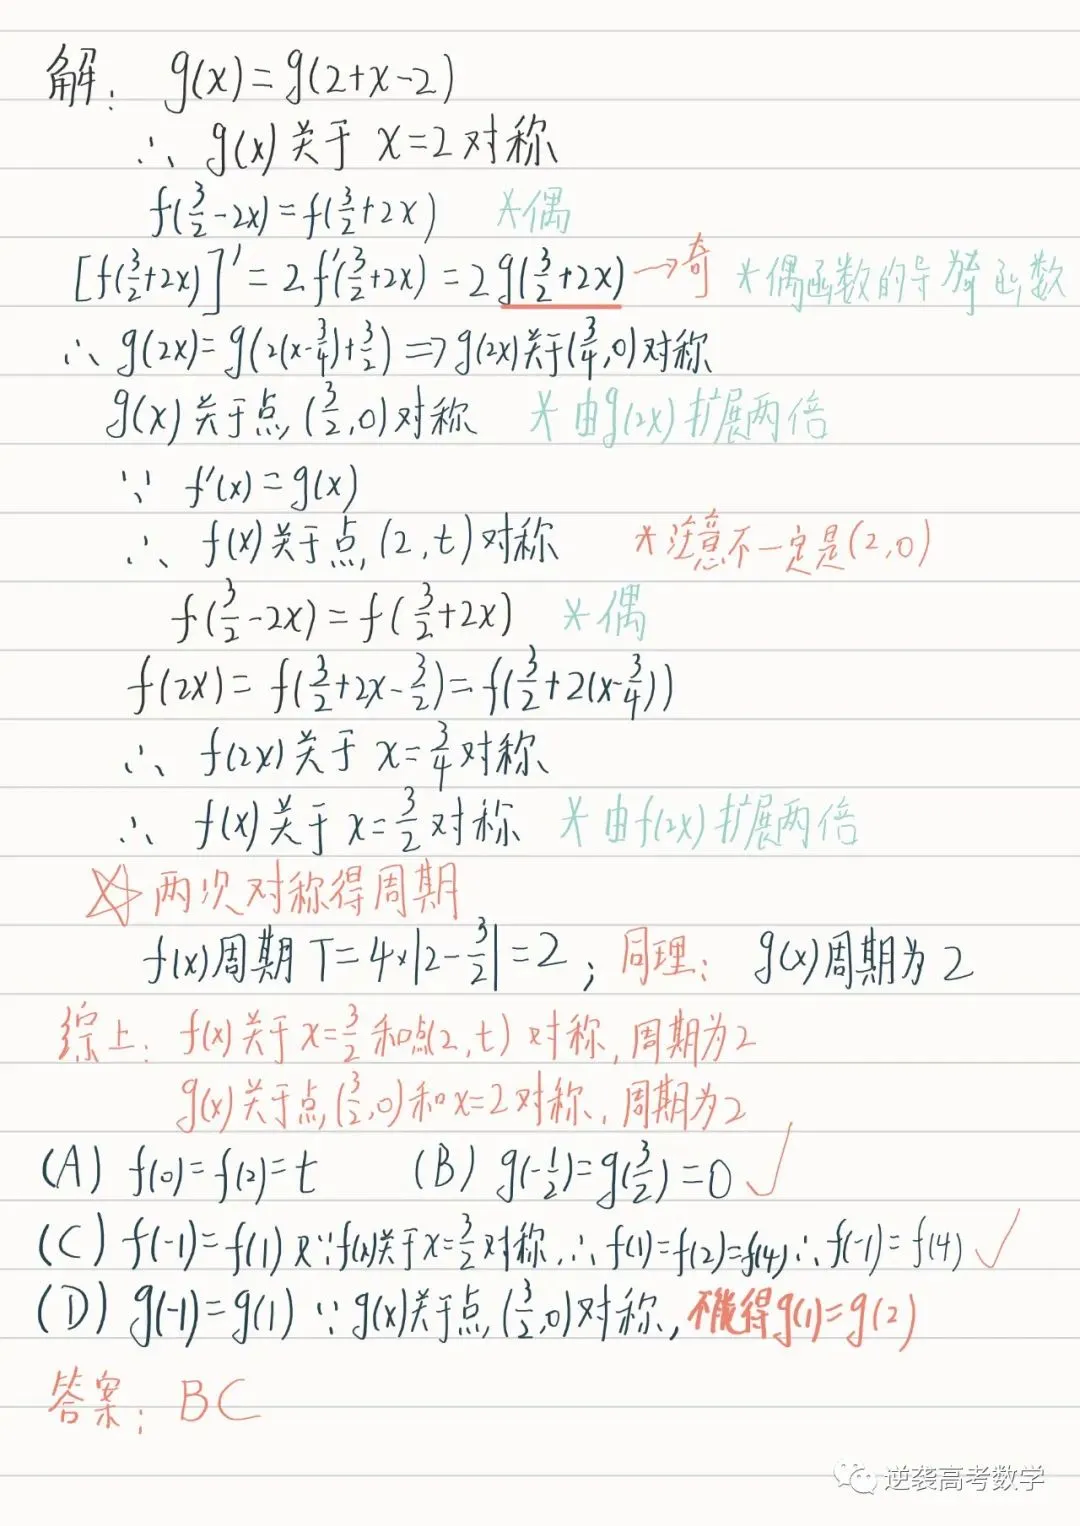 解: g(x)=g(2+x-2)
∴ g(x)关于 x=2对称
f(3/2-2x)=f(3/2+2x) *偶
[f(3/2+2x)]'=2f'(3/2+2x)=2g(3/2+2x)→奇 *偶函数的导为奇函数
∴ g(2x)=g(2(x-3/4)+3/2)⇒g(2x)关于(3/4,0)对称
g(x)关于点(3/2,0)对称 *由g(2x)扩展两倍
∵ f'(x)=g(x)
∴ f(x)关于点(2,t)对称 *注意不一定是(2,0)
f(3/2-2x)=f(3/2+2x) *偶
f(2x)=f(3/2+2x-3/2)=f(3/2+2(x-3/4))
∴ f(2x)关于 x=3/4对称
∴ f(x)关于 x=3/2对称 *由f(2x)扩展两倍
☆两次对称得周期
f(x)周期T=4×|2-3/2|=2; 同理: g(x)周期为2
综上: f(x)关于x=3/2和点(2,t)对称,周期为2
g(x)关于点(3/2,0)和x=2对称,周期为2
(A) f(0)=f(2)=t (B) g(-1/2)=g(3/2)=0 ✓
(C) f(-1)=f(1) 又∵f(x)关于x=3/2对称,∴f(1)=f(2)=f(4)∴f(-1)=f(4) ✓
(D) g(-1)=g(1) ∵g(x)关于点(3/2,0)对称,不能得g(1)=g(2)
答案: BC
逆袭高考数学